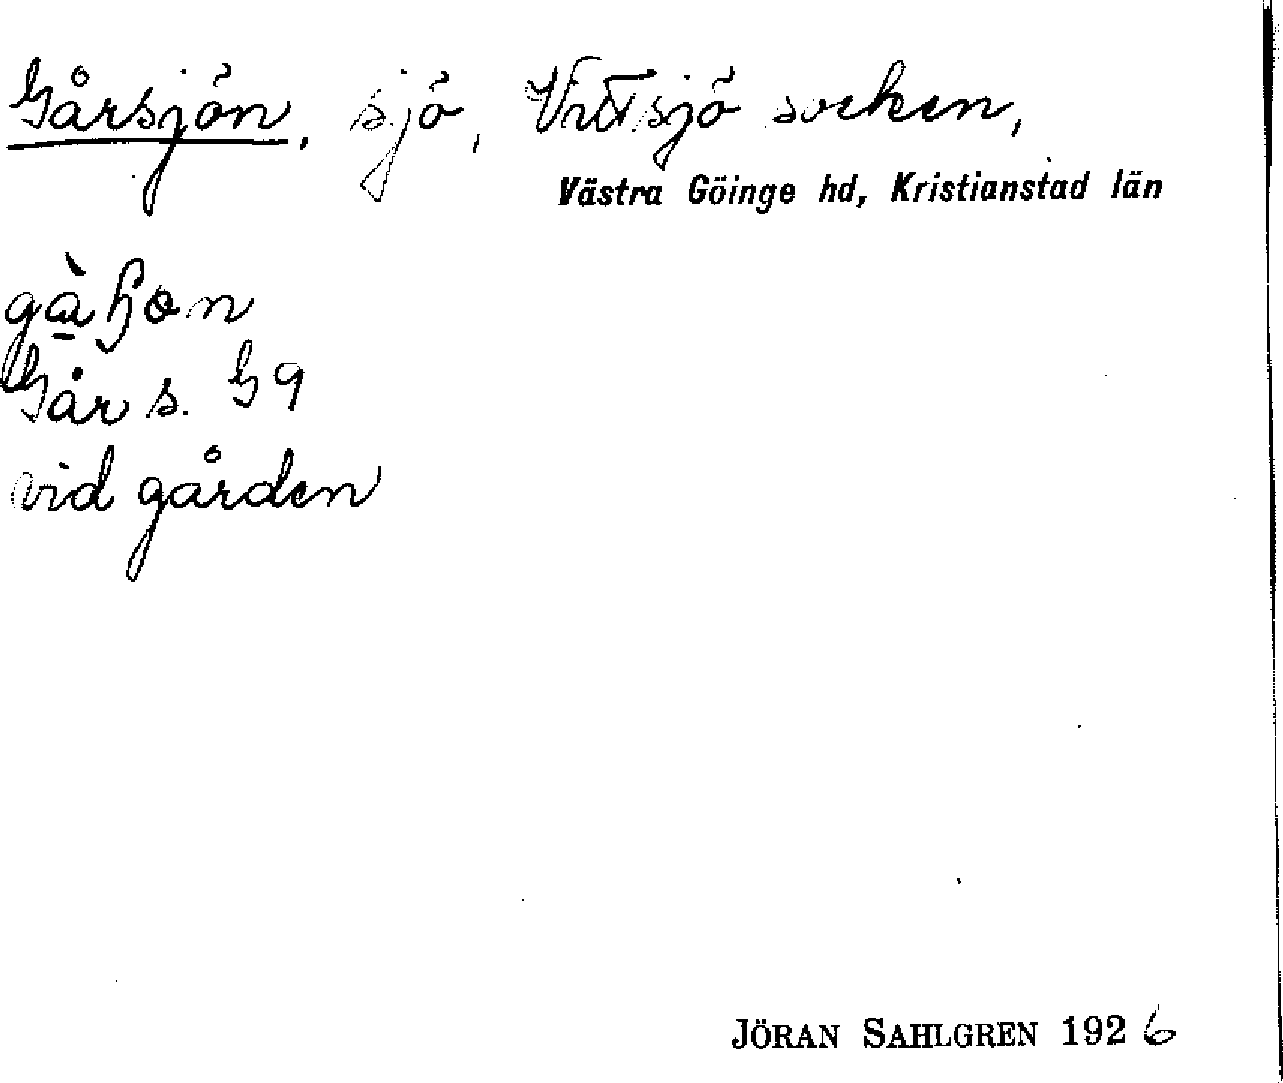 Gårsjön, sjö, Vittsjö socken,
Västra Göinge hd, Kristianstad län
Går s. G 9
vid gården
JÖRAN SAHLGREN 1926